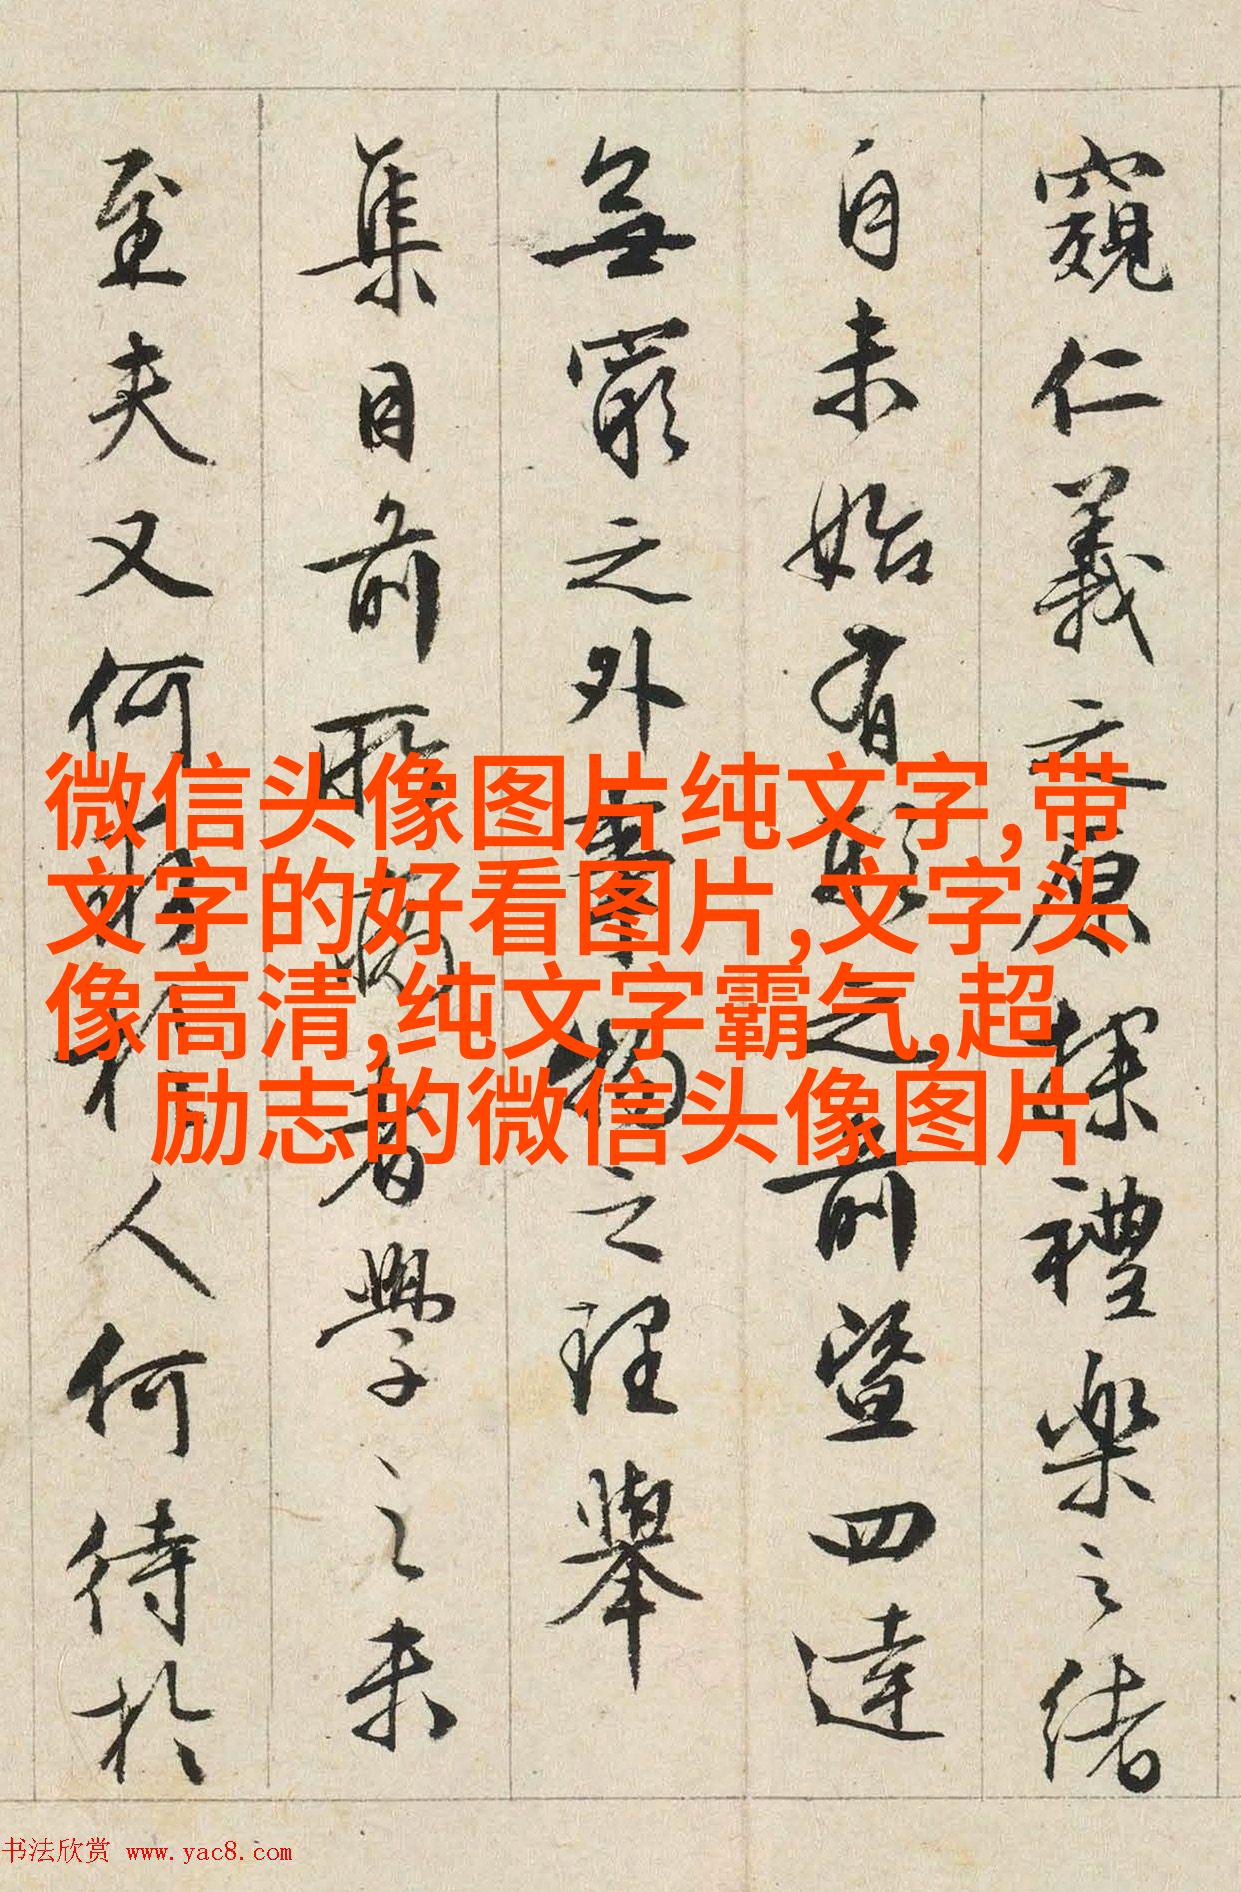 窺仁義之原探禮樂之緒
自未始有形之前暨四達
無窮之外事物之理舉
集目前所病者學之未
至夫又何求於人何待於
微信头像图片纯文字,带
文字的好看图片,文字头
像高清,纯文字霸气,超
励志的微信头像图片
书法欣赏 www.yac8.com